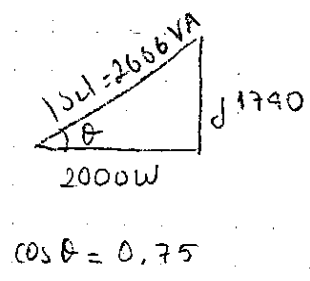 |SL|=2666VA
θ
j1740
2000W
cosθ = 0,75